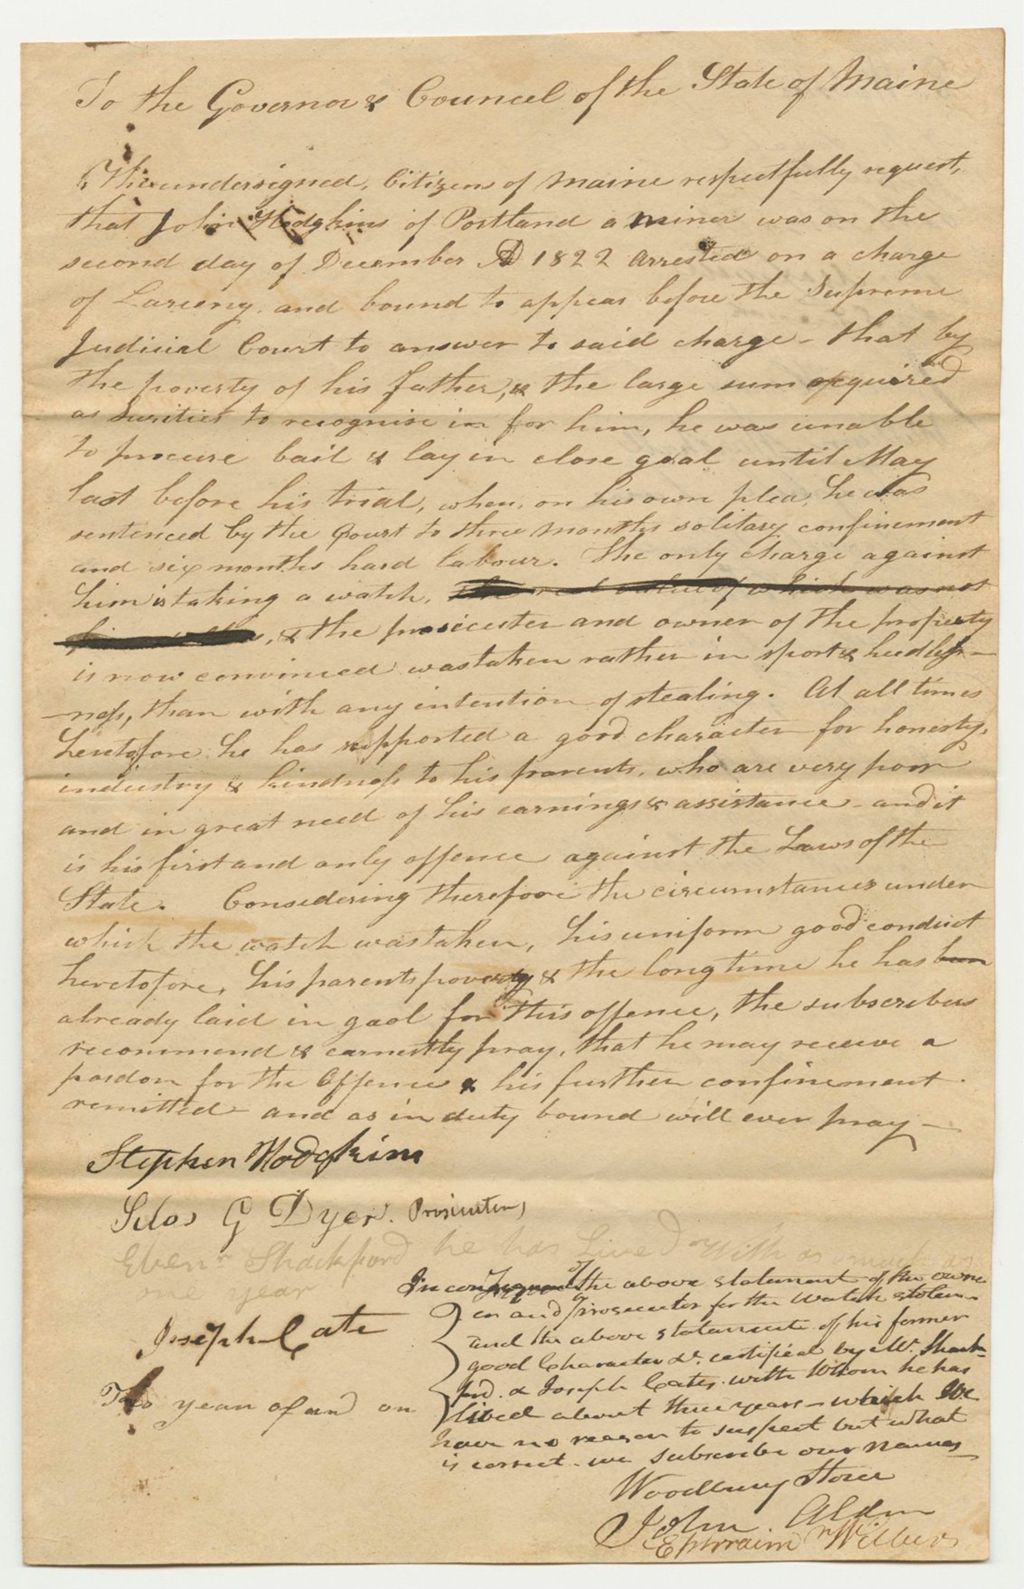 To the Governor & Councel of the State of Maine
The undersigned, Citizens of Maine respectfully request,
that John Hodgkins of Portland a minor was on the
second day of December AD 1822 arrested on a charge
of Larceny. and bound to appear before the Supreme
Judicial Court to answer to said charge - that by
the poverty of his father, & the large sum required
as Surities to recognise in for him, he was unable
to procure bail & lay in close goal until May
last before his trial, when, on his own plea, he was
sentenced by the Court to three months solitary confinement
and six months hard labour. The only charge against
him is taking a watch, the real value of which was not
, & the prosecuter and owner of the property
is now convinced was taken rather in sport & heedless-
-ness, than with any intention of stealing. At all times
heretofore he has supported a good character for honesty,
industry & kindness to his parents, who are very poor
and in great need of his earnings & assistance - and it
is his first and only offence against the Laws of the
State. Considering therefore the circumstances under
which the watch was taken, his uniform good conduct
heretofore, his parents poverty & the long time he has been
already laid in gaol for this offence, the subscribers
recommend & earnestly pray, that he may receive a
pardon for the Offence & his further confinement
remitted - and as in duty bound will ever pray -
Stephen Hodgkins
Silas G Dyer. Prosicuter,
Ebenr Shackford he has Lived with
me year
Joseph Cate
Two year and on
In the above statement of the own-
er and Prosecutor for the Watch stolen -
and the above statements of his former
good Character &c. certified by Mr. Shack-
ford. & Joseph Cates. with whom he has
lived about three years - which We
have no reason to suspect but what
is correct - we subscribe our names
Woodbury Storer
John Alden
Ephraim Wilbur